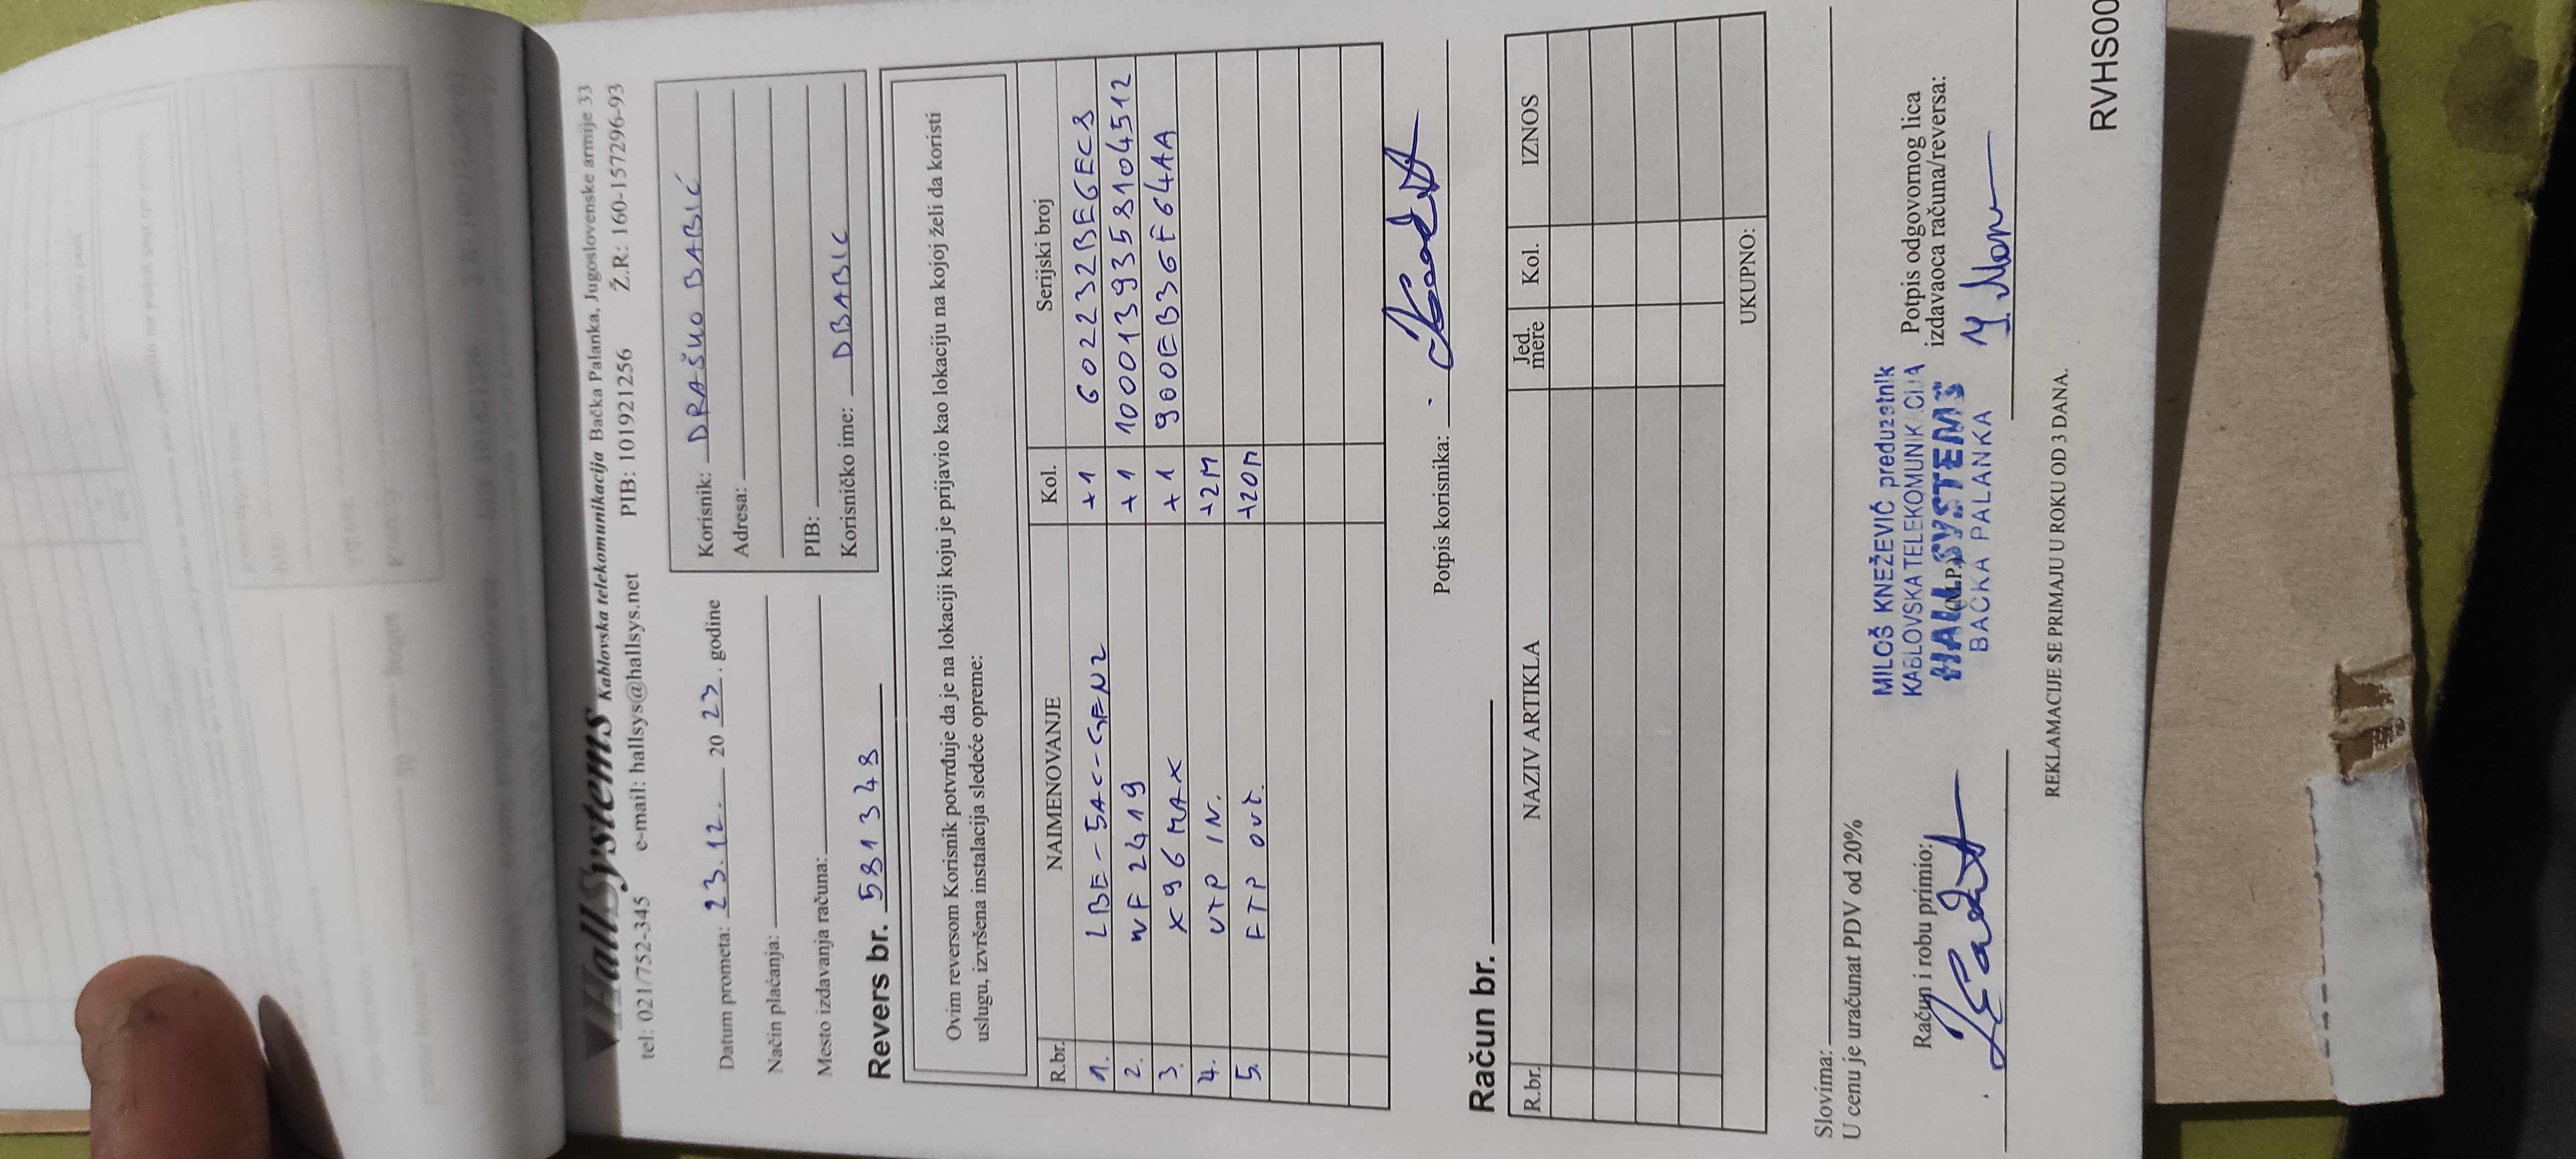 HallSystems Kablovska telekomunikacija Bačka Palanka, Jugoslovenske armije 33
tel: 021/752-345 e-mail: hallsys@hallsys.net PIB: 101921256 Ž.R: 160-157296-93
Datum prometa: 23.12. 20 23. godine
Način plaćanja:
Mesto izdavanja računa:
Korisnik: DRAŠKO BABIĆ
Adresa:
PIB:
Korisničko ime: DBABIC
Revers br. 581348
Ovim reversom Korisnik potvrđuje da je na lokaciji koju je prijavio kao lokaciju na kojoj želi da koristi
uslugu, izvršena instalacija sledeće opreme:
R.br. NAIMENOVANJE Kol. Serijski broj
1. LBE-5AC-GEN2 +1 602232BE6EC8
2. WF2419 +1 1000139358104512
3. X96 MAX +1 900EB36F64AA
4. UTP IN. +2M
5. FTP OUT. +20M
Potpis korisnika:
Račun br.
R.br. NAZIV ARTIKLA Jed. mere Kol. IZNOS
UKUPNO:
Slovima:
U cenu je uračunat PDV od 20%
Račun i robu primio:
MILOŠ KNEŽEVIĆ preduzetnik
KABLOVSKA TELEKOMUNIKACIJA
(M.P.)
HALLSYSTEMS
BAČKA PALANKA
Potpis odgovornog lica
izdavaoca računa/reversa:
REKLAMACIJE SE PRIMAJU U ROKU OD 3 DANA.
RVHS00